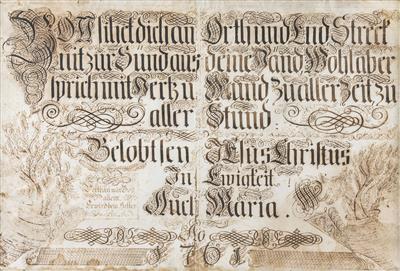 GOtt sihet dich an Orth und End Streck
nit zur Sünd aus deine Händ Wohl aber
sprich mit Hertz u Mund Zu aller Zeit zu
aller Stund
Gelobt sey JEsus Christus
In Ewigkeit
Auch Maria.
Ao
1701